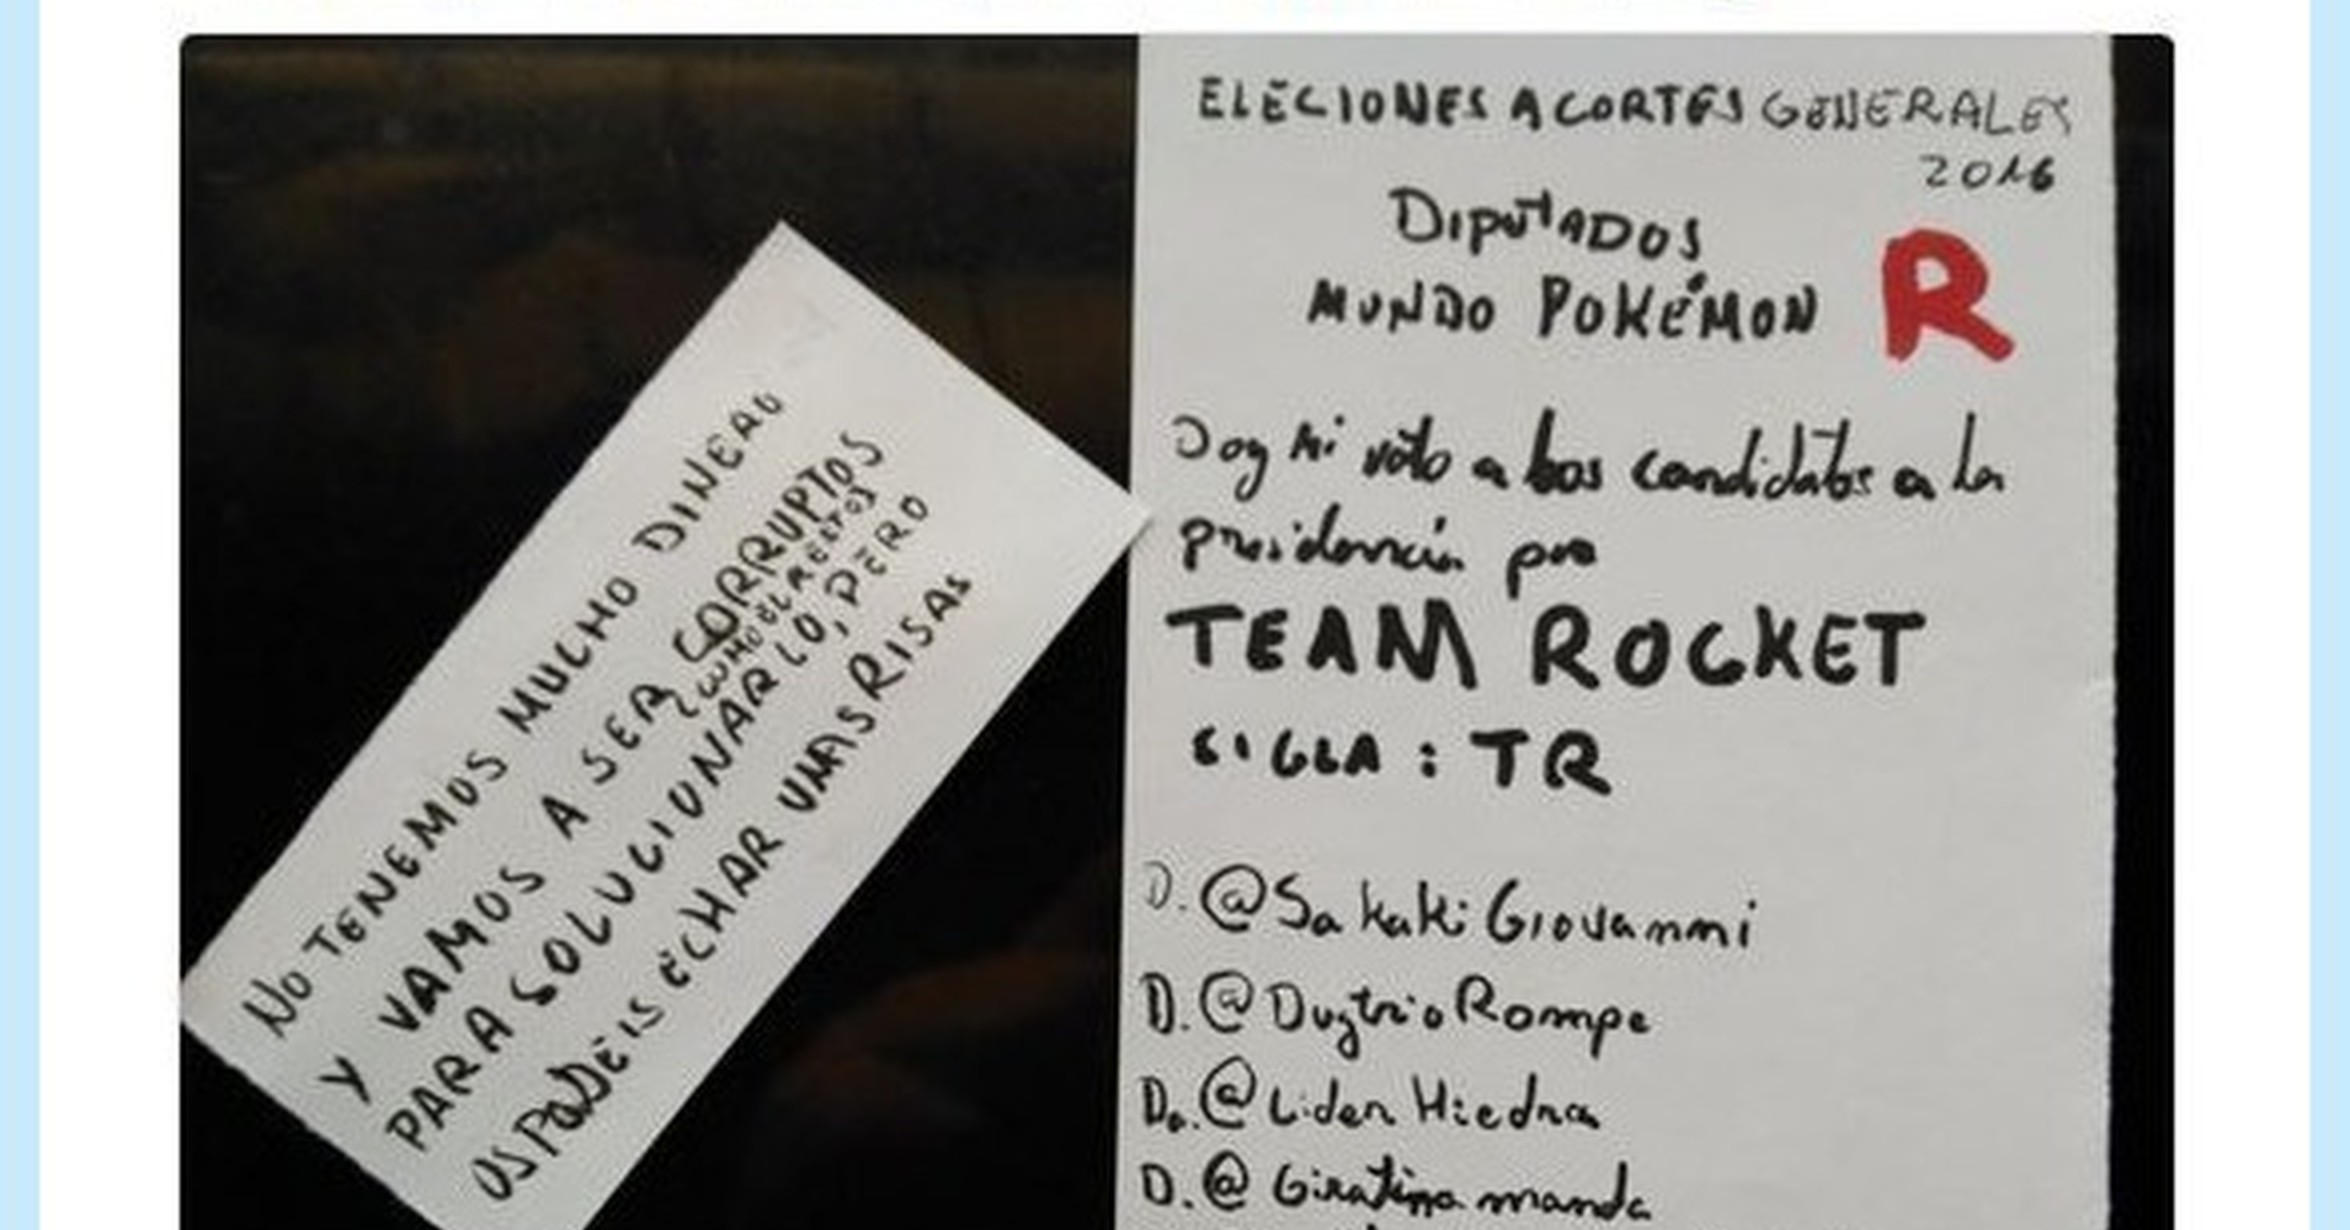 NO TENEMOS MUCHO DINERO
Y VAMOS A SER CORRUPTOS
(COMO EL RESTOS
PARA SOLUCIONARLO, PERO
OS PODEIS ECHAR UNAS RISAS
ELECIONES A CORTES GENERALES
2016
DIPUTADOS
MUNDO POKÉMON
R
Doy mi voto a los candidatos a la
presidencia por
TEAM ROCKET
SIGLA: TR
D. @SakakiGiovanni
D. @DugtrioRompe
Da. @LiderHiedra
D. @Giratinamanda